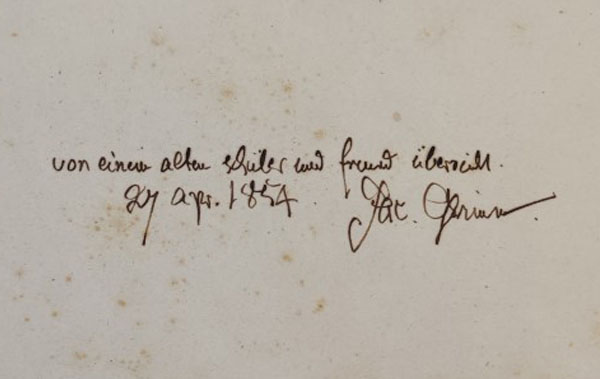 von einem alten schüler und freund überreicht.
27 apr. 1854. Jac. Grimm.